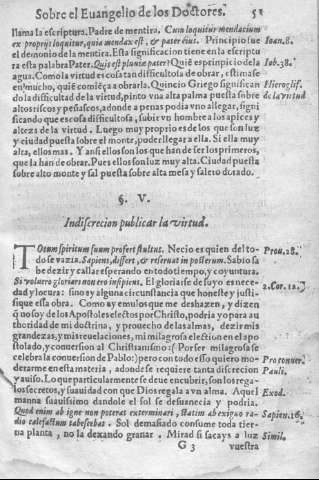 Sobre el Euangelio de los Doctores. 51
llama la escriptura, Padre de mentira. Cum loquitur mendacium
ex proprijs loquitur, quia mendax est, & pater eius. Principio fue Ioan.8.
el demonio de la mentira. Esta significacion tiene en la escriptu
ra esta palabra Pater. Quis est pluuiæ pater? Quiẽ es prinpicio dela Iob.38.
agua. Como la virtud es cosa tan dificultosa de obrar, estimase
en mucho, quiẽ comiẽça a obrarla. Quinto Griego significan Hieroglif.
do la dificultad de la virtud, pinto vna alta palma puesta sobre de la virtud
altos riscos y peñascos, adonde a penas podia vno allegar, signi
ficando que es cosa dificultosa, subir vn hombre a los apices y
alteza de la virtud. Luego muy proprio es de los que son luz
y ciudad puesta sobre el monte, poder llegar a ella. Si ella muy
alta, ellos mas. Y ansi ellos son los que han de ser los primeros,
que la han de obrar. Pues ellos son luz muy alta. Ciudad puesta
sobre alto monte y sal puesta sobre alta mesa y salero dorado.
§. V.
Indiscrecion publicar la virtud.
TOtum spiritum suum profert stultus. Necio es quien del to- Prou.28.
do se vazia. Sapiens, differt, & reseruat in posterum. Sabio sa
be dezir y callar esperando en todo tiempo, y coyuntura.
Si voluero gloriari non ero insipiens. El gloriarse de suyo es nece-
dad y locura: sino ay alguna circunstancia que honeste y justi- 2.Cor.12.
fique essa obra. Como ay emulos que me deshazen, y dizen
q̃ no soy de los Apostoles electos por Christo, podria yo para au
thoridad de mi doctrina, y prouecho de las almas, dezir mis
grandezas, y mis reuelaciones, mi milagrosa election en el apo
stolado, y conuersion al Christianismo: (Por ser milagrosa se
celebra la conuersion de Pablo:) pero con todo esso quiero mo- Pro conuer.
derarme en esta materia, adonde se requiere tanta discrecion Pauli.
y auiso. Lo que particularmente se deue encubrir, son los rega-
los secretos, y suauidad con que Dios regala a vn alma. Aquel Exod.
manna suauissimo dandole el sol se desuanecia y podria.
Quod enim ab igne non poterat exterminari, statim ab exiguo ra- Sapien.16.
dio calefactum tabescebat. Sol demasiado consume toda tier-
na planta, no la dexando granar. Mirad si sacays a luz Simil.
G 3 vuestra